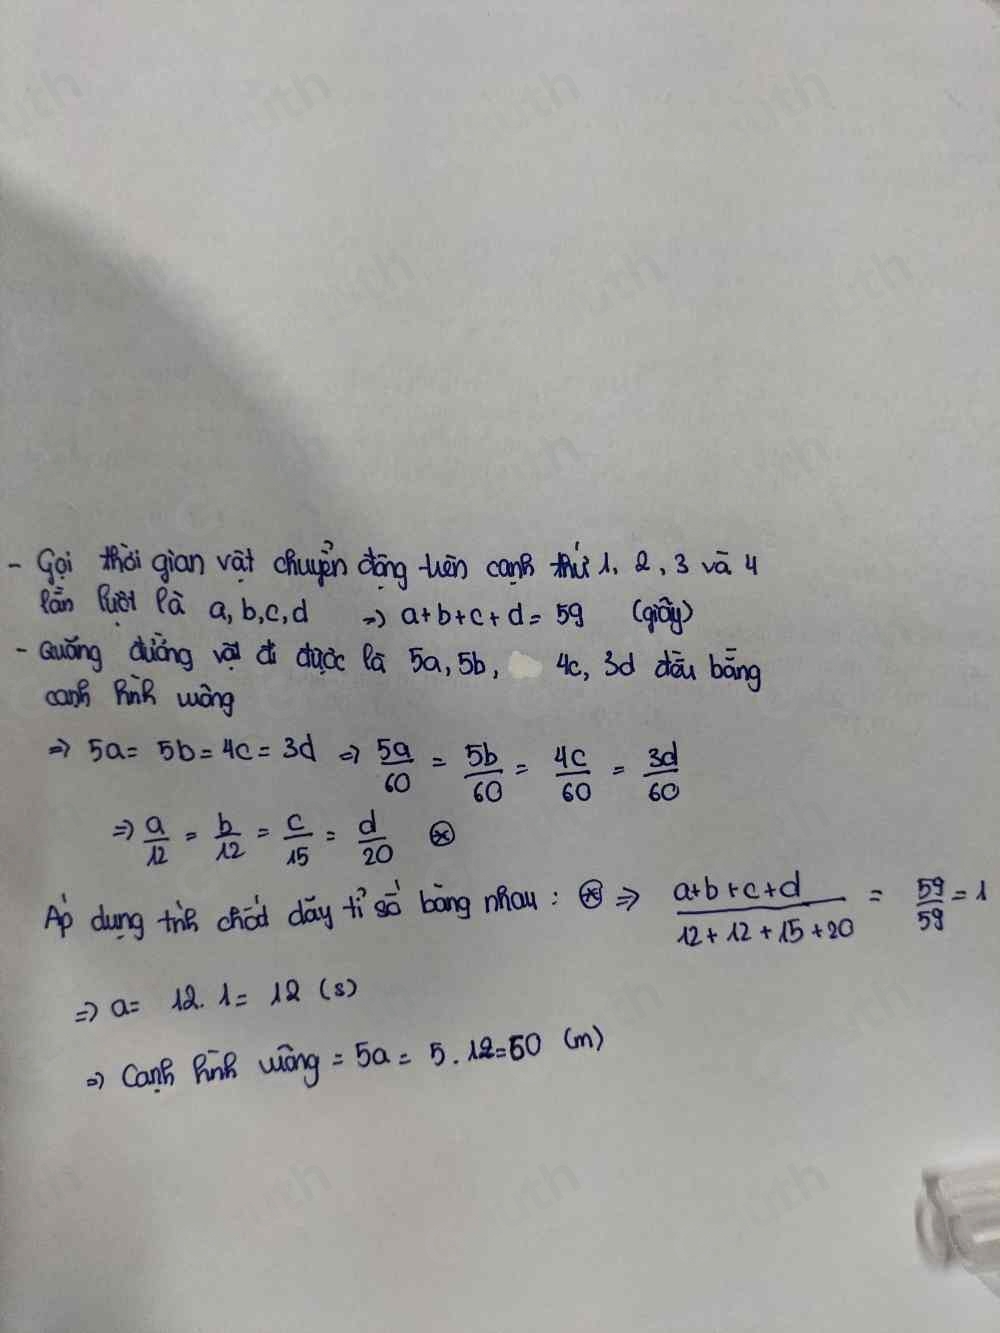 - Gọi thời gian vật chuyển động trên cạnh thứ 1, 2, 3 và 4
lần lượt là a, b, c, d => a+b+c+d = 59 (giây)
- Quãng đường vật đi được là 5a, 5b, 4c, 3d đều bằng
cạnh hình vuông
=> 5a = 5b = 4c = 3d => 5a/60 = 5b/60 = 4c/60 = 3d/60
=> a/12 = b/12 = c/15 = d/20 (*)
Áp dụng tính chất dãy tỉ số bằng nhau : (*) => (a+b+c+d)/(12+12+15+20) = 59/59 = 1
=> a = 12. 1 = 12 (s)
=> Cạnh hình vuông = 5a = 5 . 12 = 60 (m)